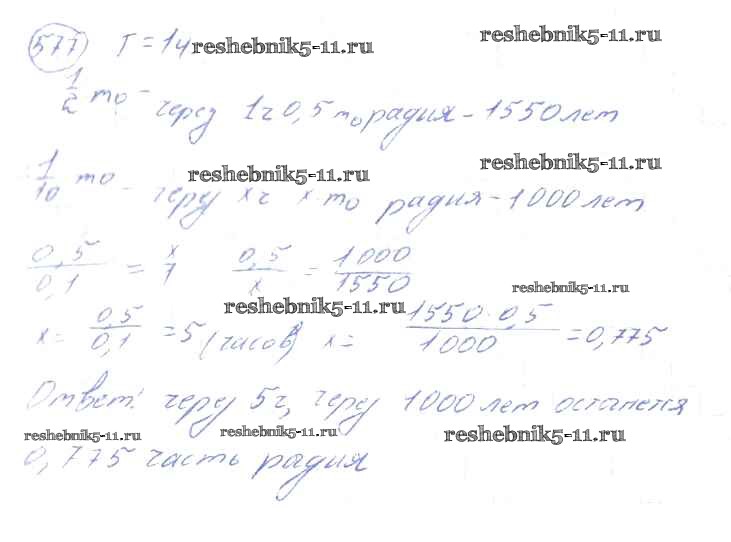 577 T = 1ч reshebnik5-11.ru reshebnik5-11.ru
1/2 m₀ - через 1ч 0,5 m₀ радия - 1550 лет
reshebnik5-11.ru reshebnik5-11.ru
1/10 m₀ - через xч x·m₀ радия - 1000 лет
0,5/0,1 = x/1 0,5/x = 1000/1550
reshebnik5-11.ru reshebnik5-11.ru
x = 0,5/0,1 = 5 (часов) x = 1550·0,5/1000 = 0,775
Ответ: через 5ч, через 1000 лет останется
reshebnik5-11.ru reshebnik5-11.ru reshebnik5-11.ru
0,775 часть радия